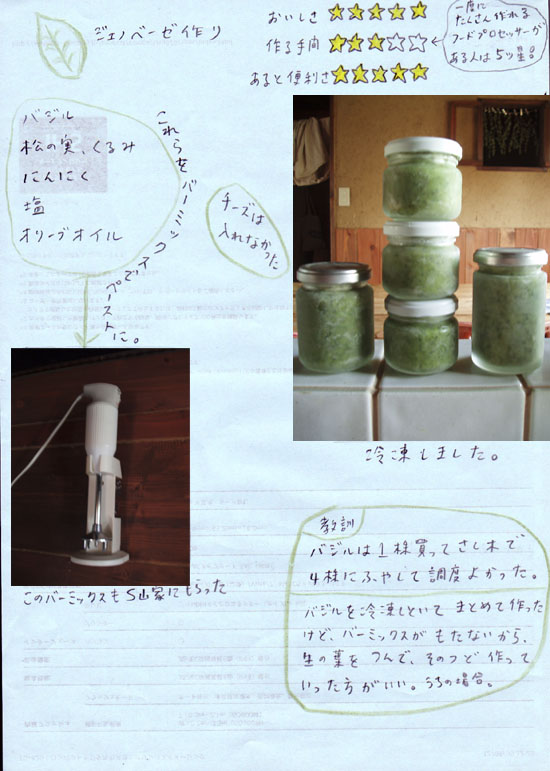 ジェノベーゼ作り
おいしさ ★★★★★
作る手間 ★★★☆☆
あると便利さ ★★★★★
一度に
たくさん作れる
フードプロセッサーが
ある人は5ツ星。
バジル
松の実、くるみ
にんにく
塩
オリーブオイル
これらをバーミックスでペーストに。
チーズは
入れなかった
冷凍しました。
このバーミックスもS山家にもらった
教訓
バジルは1株買ってさし木で
4株にふやして調度よかった。
バジルを冷凍しといてまとめて作った
けど、バーミックスがもたないから、
生の葉をつんで、そのつど作って
いった方がいい。うちの場合。